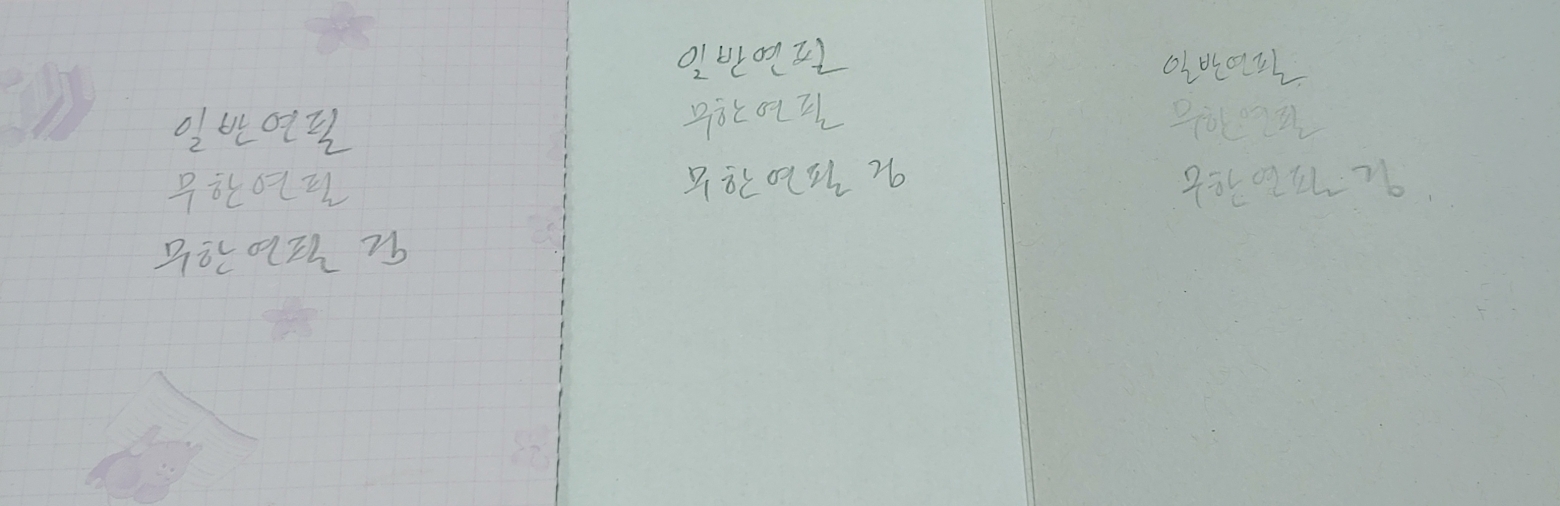 일반연필
무한연필
무한연필 검
일반연필
무한연필
무한연필 검
일반연필
무한연필
무한연필 검